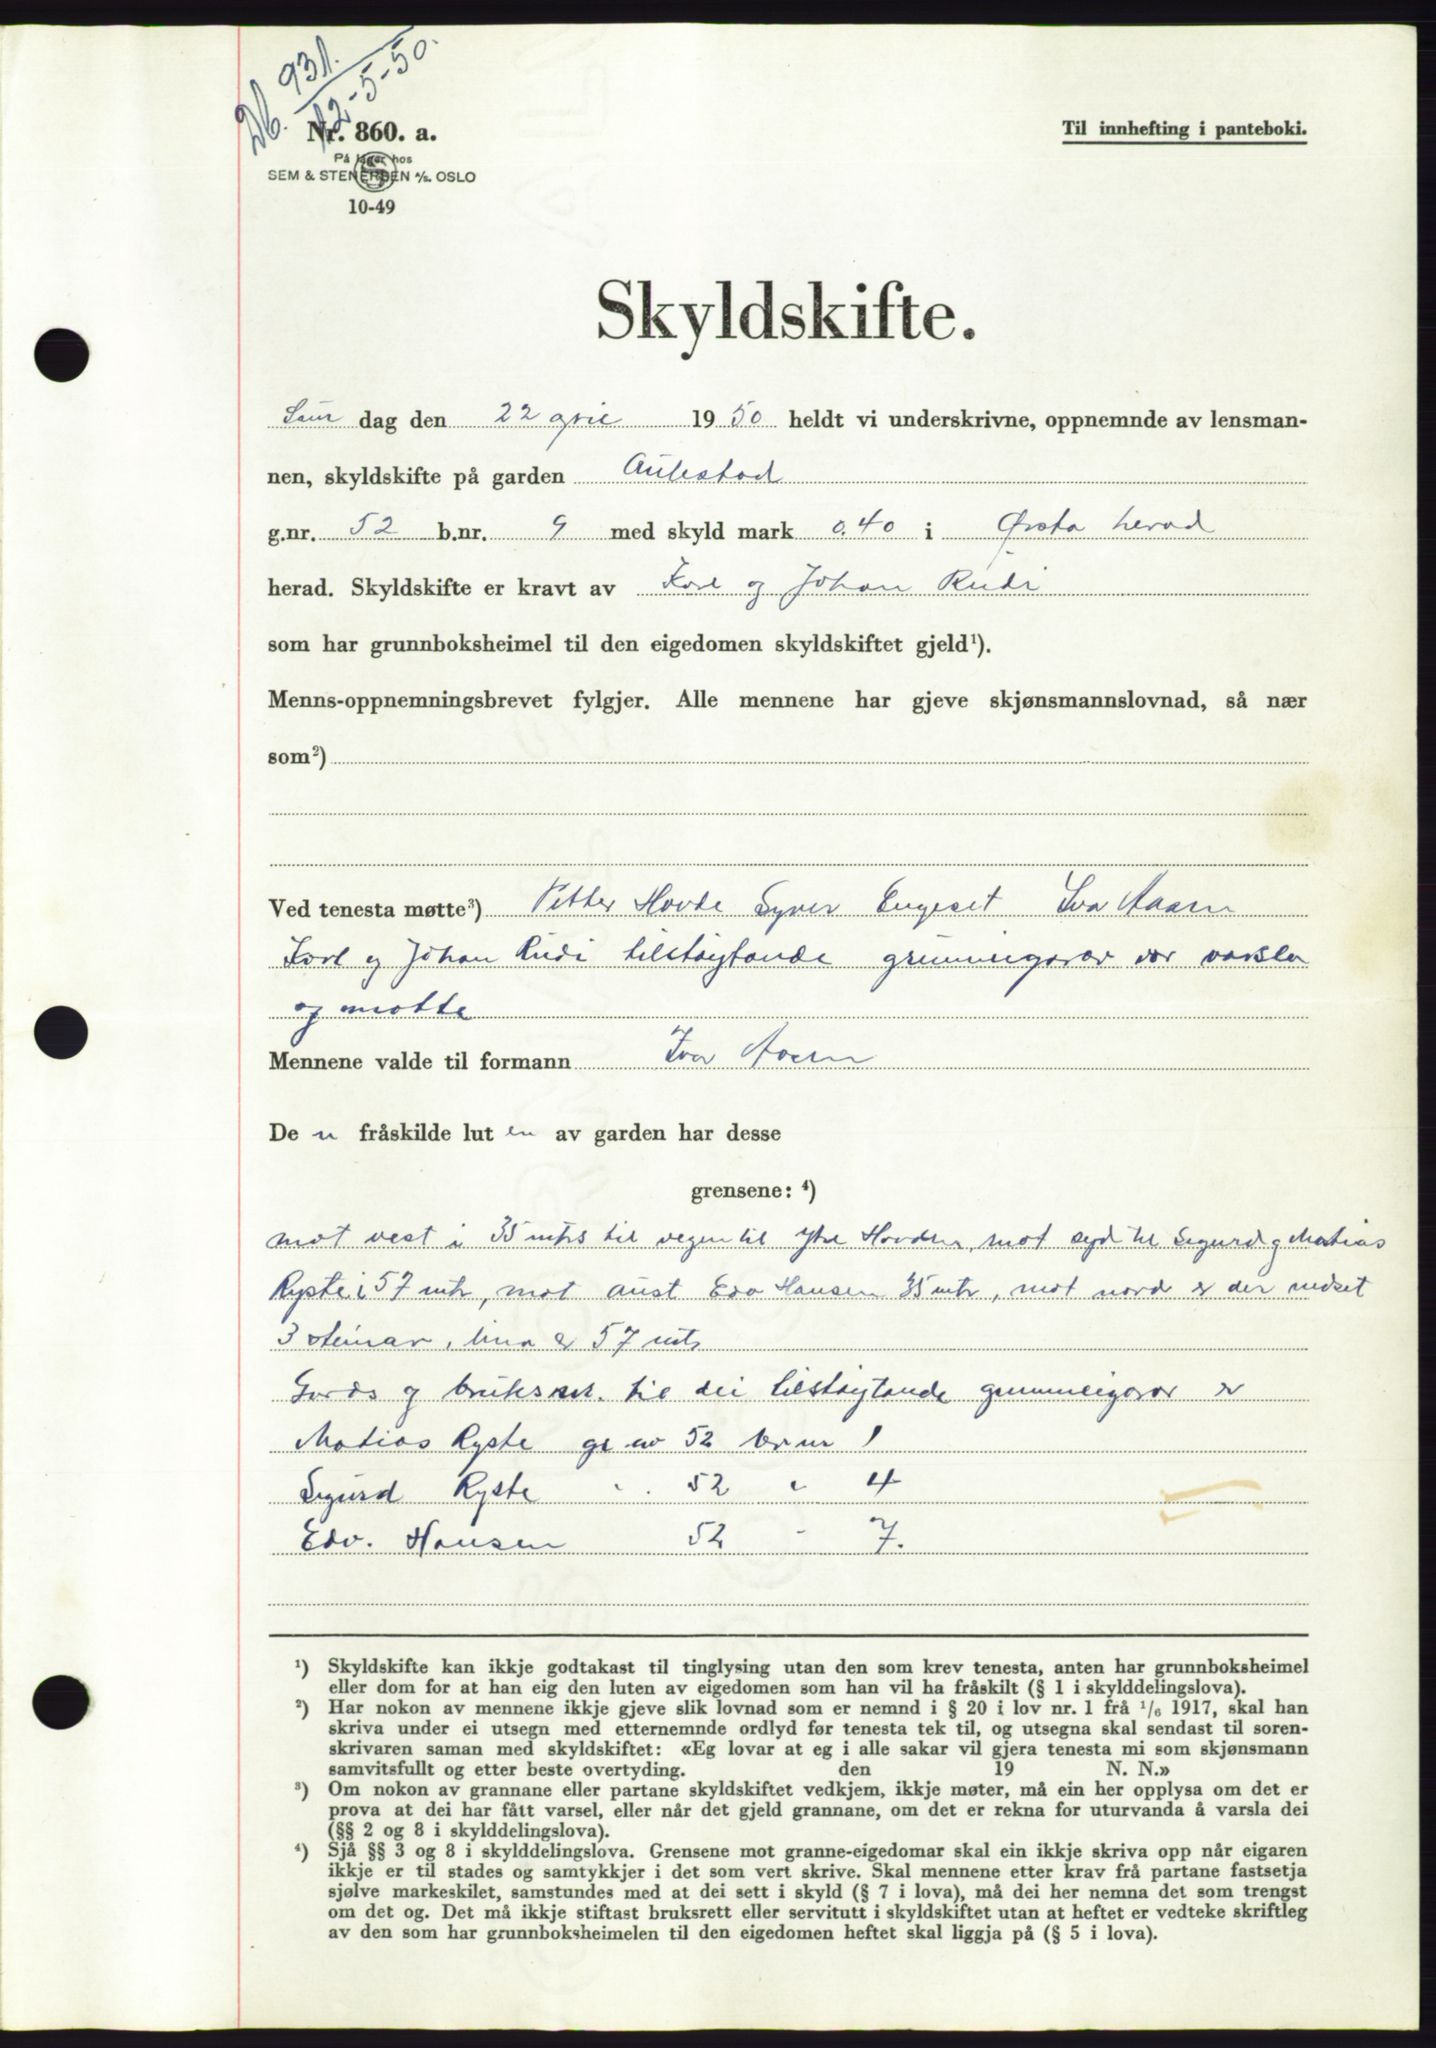 Db. 931.
12-5-50.
Nr. 860. a.
På lager hos
SEM & STENERSEN A/S. OSLO
10-49
Til innhefting i panteboki.
Skyldskifte.
Laur dag den 22 april 1950 heldt vi underskrivne, oppnemnde av lensman-
nen, skyldskifte på garden Aulestad
g.nr. 52 b.nr. 9 med skyld mark 0.40 i Ørsta herad
herad. Skyldskifte er kravt av Karl og Johan Rudi
som har grunnboksheimel til den eigedomen skyldskiftet gjeld¹).
Menns-oppnemningsbrevet fylgjer. Alle mennene har gjeve skjønsmannslovnad, så nær
som²)
Ved tenesta møtte³) Petter Hovde Syver Engeset Ivar Aasen
Karl og Johan Rudi tilstøytande grunneigarar var varsla
og møtte
Mennene valde til formann Ivar Aasen
De n fråskilde lut en av garden har desse
grensene: ⁴)
mot vest i 35 mtrs til vegen til Ytre Hovden, mot syd til Sigurd og Matias
Ryste i 57 mtr, mot aust Edv Hansen 35 mtr, mot nord er der nedset
3 steinar, lina er 57 mtr
Gards og bruksnr. til dei tilstøytande grunneigarar er
Matias Ryste gr nr 52 br nr 1
Sigurd Ryste " . 52 " 4
Edv. Hansen 52 - 7.
¹) Skyldskifte kan ikkje godtakast til tinglysing utan den som krev tenesta, anten har grunnboksheimel
eller dom for at han eig den luten av eigedomen som han vil ha fråskilt (§ 1 i skylddelingslova).
²) Har nokon av mennene ikkje gjeve slik lovnad som er nemnd i § 20 i lov nr. 1 frå ¹/₆ 1917, skal han
skriva under ei utsegn med etternemnde ordlyd før tenesta tek til, og utsegna skal sendast til soren-
skrivaren saman med skyldskiftet: «Eg lovar at eg i alle sakar vil gjera tenesta mi som skjønsmann
samvitsfullt og etter beste overtyding. den 19 N. N.»
³) Om nokon av grannane eller partane skyldskiftet vedkjem, ikkje møter, må ein her opplysa om det er
prova at dei har fått varsel, eller når det gjeld grannane, om det er rekna for uturvanda å varsla dei
(§§ 2 og 8 i skylddelingslova).
⁴) Sjå §§ 3 og 8 i skylddelingslova. Grensene mot granne-eigedomar skal ein ikkje skriva opp når eigaren
ikkje er til stades og samtykkjer i det som vert skrive. Skal mennene etter krav frå partane fastsetja
sjølve markeskilet, samstundes med at dei sett i skyld (§ 7 i lova), må dei her nemna det som trengst
om det og. Det må ikkje stiftast bruksrett eller servitutt i skyldskiftet utan at heftet er vedteke skriftleg
av den som har grunnboksheimelen til den eigedomen heftet skal liggja på (§ 5 i lova).